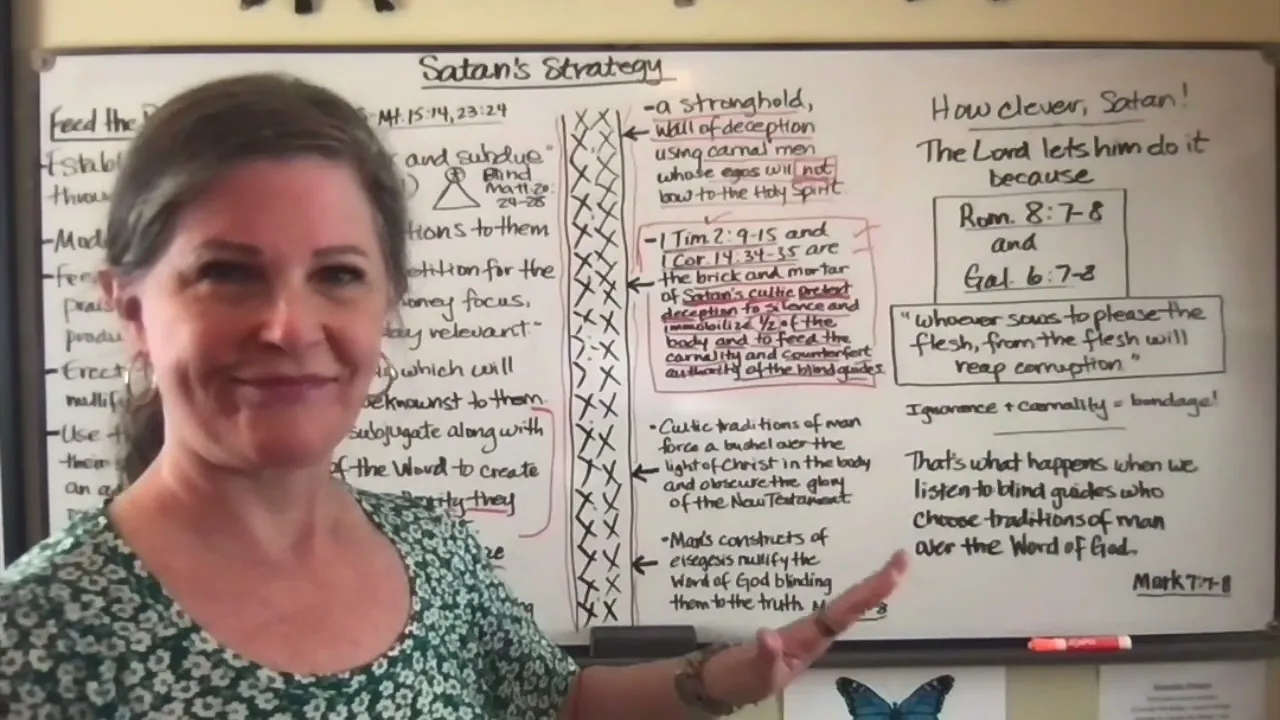 Satan's Strategy
Feed the
Mt. 15:14, 23:24
Estab
and subdue"
throu
Blind
Matt. 20:
24-28
Mod
tions to them
Fee
etition for the
prais
oney focus,
produ
ay relevant"
Erect
which will
nullif
eknownst to them.
Use t
subjugate along with
their
of the Word to create
an a
rity they
- a stronghold,
wall of deception
using carnal men
whose egos will not
bow to the Holy Spirit
- 1 Tim. 2:9-15 and
1 Cor. 14:34-35 are
the brick and mortar
of Satan's cultic pretext
deception to silence and
immobilize 1/2 of the
body and to feed the
carnality and counterfeit
authority of the blind guides.
• Cultic traditions of man
force a bushel over the
light of Christ in the body
and obscure the glory
of the New Testament
• Man's constructs of
eisegesis nullify the
Word of God blinding
them to the truth. M
-8
How clever, Satan!
The Lord lets him do it
because
Rom. 8:7-8
and
Gal. 6:7-8
"Whoever sows to please the
flesh, from the flesh will
reap corruption."
Ignorance + carnality = bondage!
That's what happens when we
listen to blind guides who
choose traditions of man
over the Word of God.
Mark 7:7-8